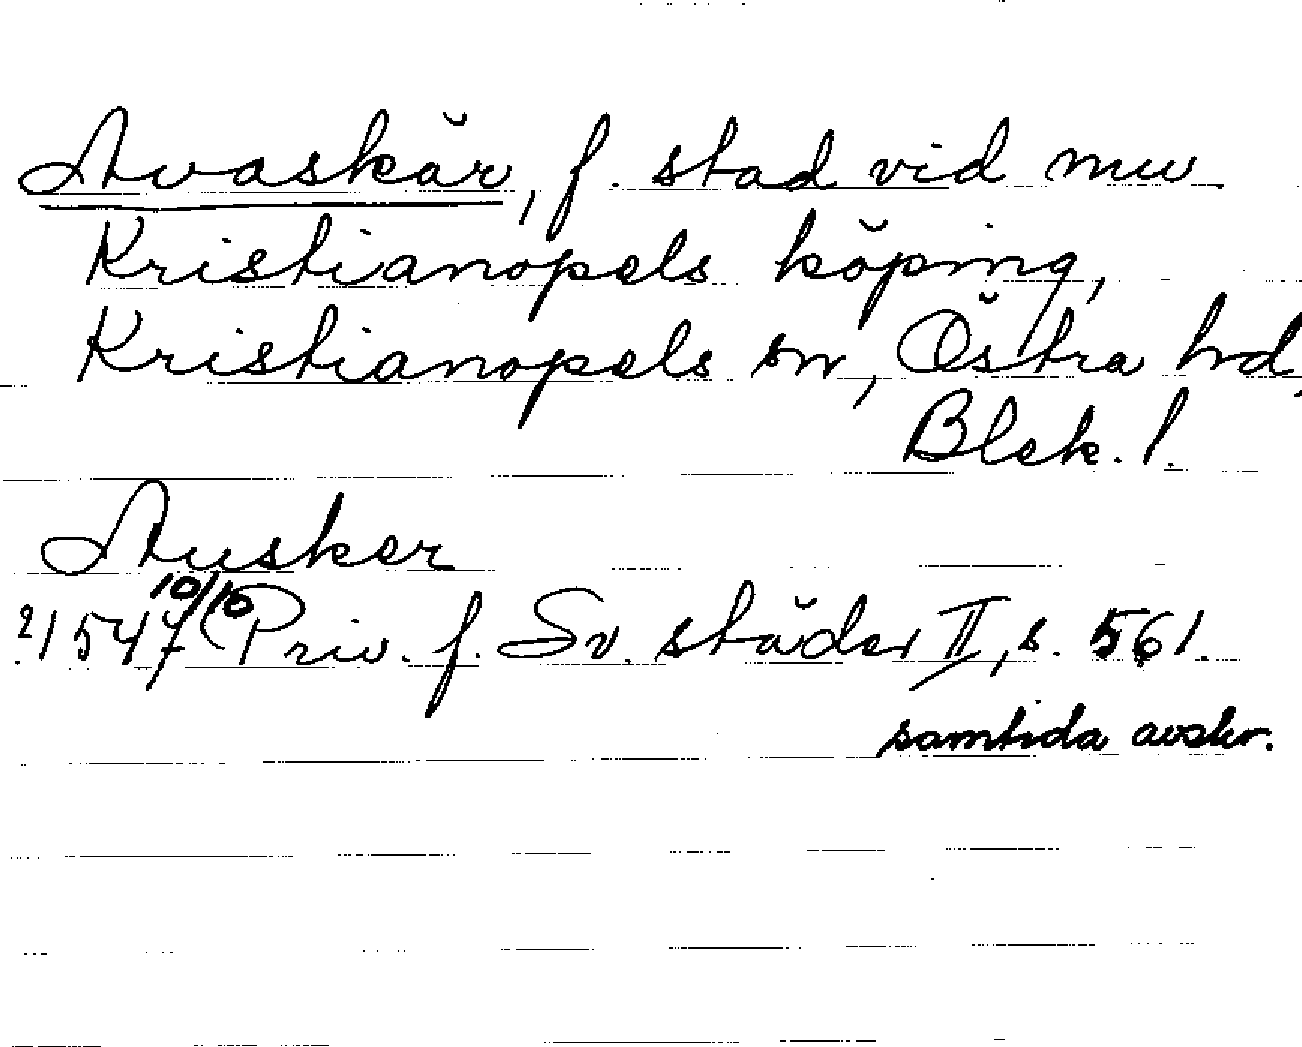 Avaskär, f. stad vid nuv
Kristianopels köping,
Kristianopels sn, Östra hd,
Blek. l.
Ausker
21547 10/10 Priv. f. Sv. städer II, s. 561.
samtida avskr.